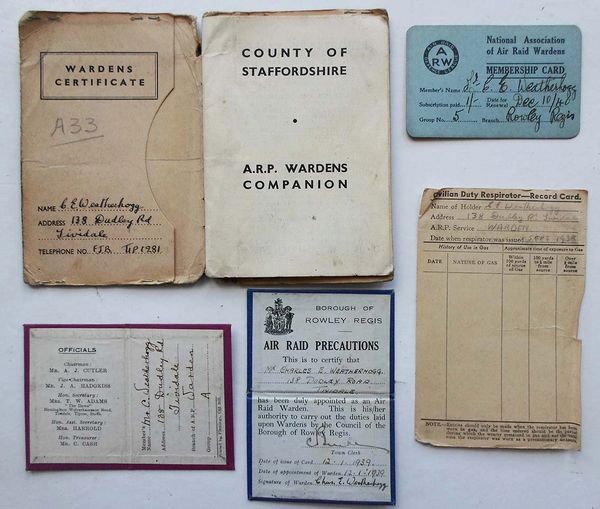 WARDENS
CERTIFICATE
A33
NAME C E Weatherhogg
ADDRESS 138 Dudley Rd
Tividale
TELEPHONE NO. TIP 1981
COUNTY OF
STAFFORDSHIRE
A.R.P. WARDENS
COMPANION
ARW
National Association
of Air Raid Wardens
MEMBERSHIP CARD
Member's Name C. E. Weatherhogg
Subscription paid 1/- Date for Renewal Dec 10/40
Group No. 5 Branch Rowley Regis
ivilian Duty Respirator—Record Card.
Name of Holder
Address 138 Dudley Rd Tividale
A.R.P. Service WARDEN
Date when respirator was issued SEPT 1938
History of Use in Gas
Approximate time of exposure to Gas
DATE
NATURE OF GAS
Within 100 yards of source of Gas
100 yards to ½ mile from source
Over ½ mile from source
NOTE.—Entries should only be made when the respirator has been
OFFICIALS
Chairman:
MR. A. J. CUTLER
Vice-Chairman:
MR. J. A. HADGKISS
Hon. Secretary:
MRS. T. W. ADAMS
Tividale, Tipton, Staffs.
Hon. Asst. Secretary:
MRS. HARROLD
Hon. Treasurer:
MR. C. CASH
Member's Name Mr C. Weatherhogg
Address 138 Dudley Rd
Tividale
Branch of A.R.P. Warden
Group A
BOROUGH OF
ROWLEY REGIS
AIR RAID PRECAUTIONS
This is to certify that
MR CHARLES E. WEATHERHOGG.
138 DUDLEY ROAD
TIVIDALE
has been duly appointed as an Air
Raid Warden. This is his/her
authority to carry out the duties laid
upon Wardens by the Council of the
Borough of Rowley Regis.
Town Clerk
Date of issue of Card 12-1-1939
Date of appointment of Warden 12-1-1939
Signature of Warden Chas. E. Weatherhogg